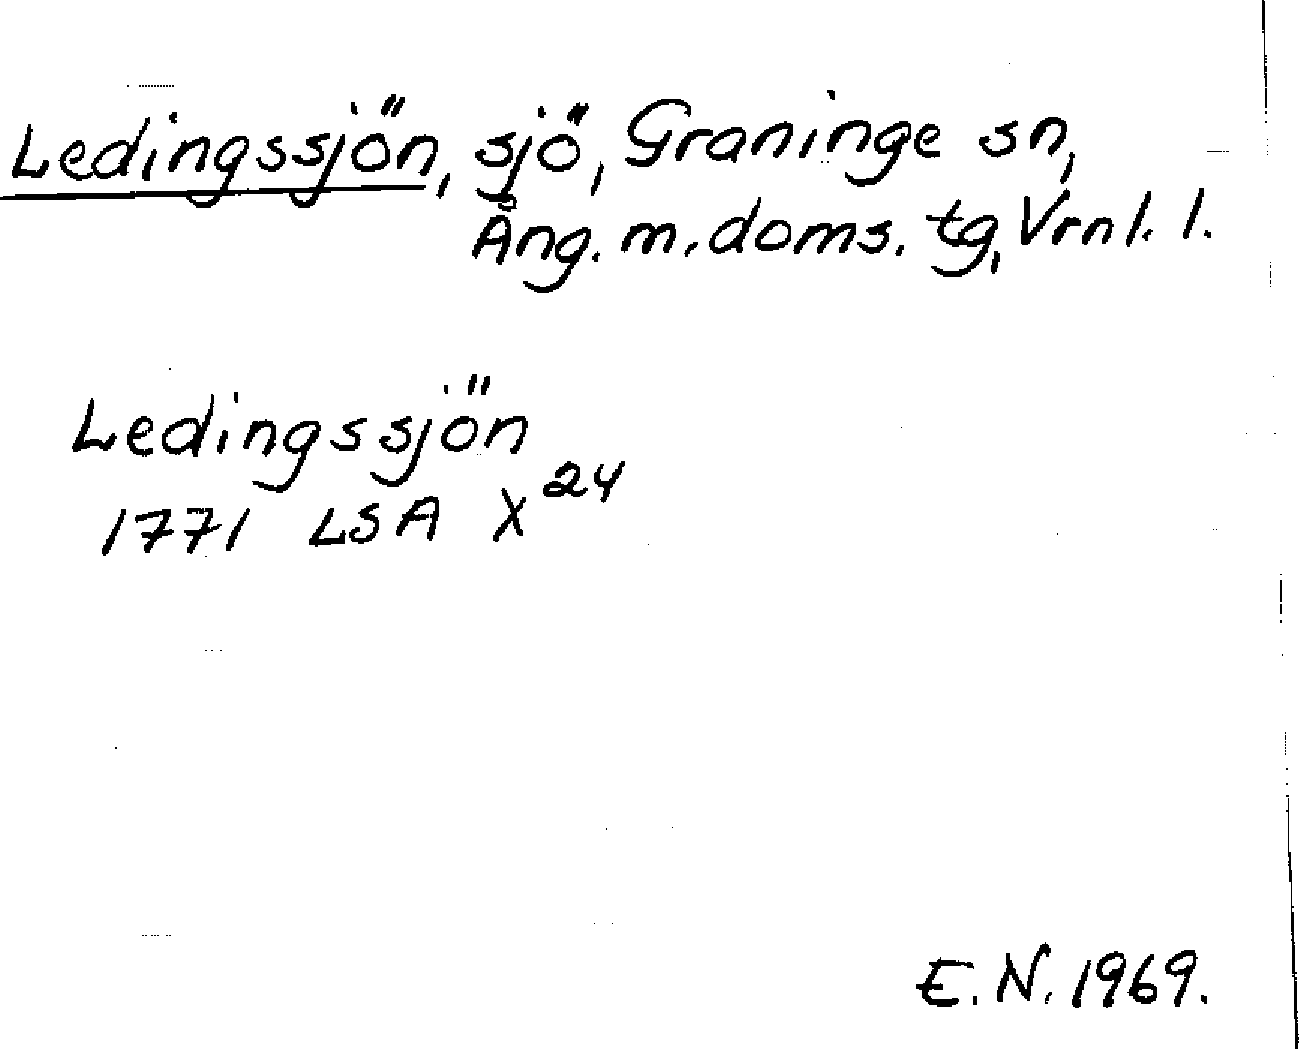 Ledingssjön, sjö, Graninge sn,
Ång. m. doms. tg, Vrnl. l.
Ledingssjön
1771 LSA X 24
E. N. 1969.